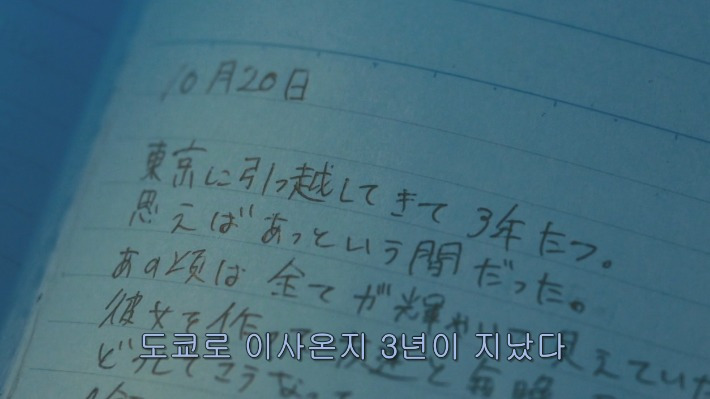 10月20日
東京に引っ越してきて3年たつ。
思えばあっという間だった。
あの頃は全てが輝やいて見えていた
彼女を作って
도쿄로 이사온지 3년이 지났다